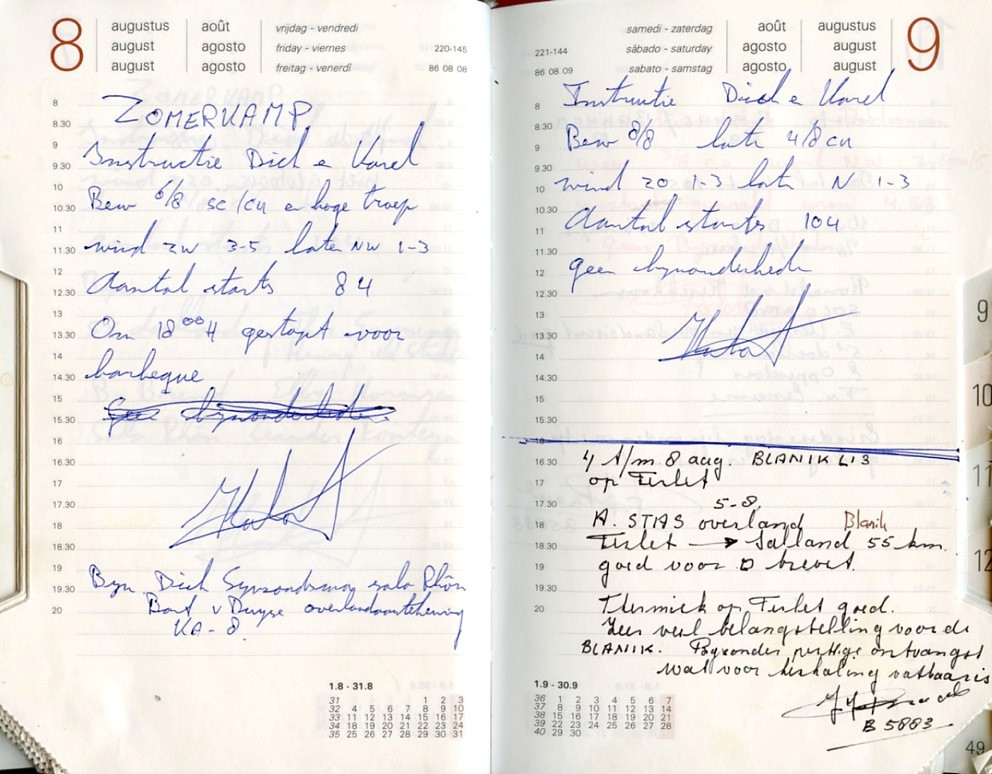 8
augustus août vrijdag - vendredi
august agosto friday - viernes 220-145
august agosto freitag - venerdì 86 08 08
ZOMERKAMP
Instructie Dick e Karel
Bew 6/8 sc/cu e hoge troep
wind ZW 3-5 later NW 1-3
Aantal starts 84
Om 18ººH gestopt voor
barbeque
Geen bijzonderheden
Bijz. Dick solo Rhön
Bart v Druyse overlandaantekening
KA-8.
8
8.30
9
9.30
10
10.30
11
11.30
12
12.30
13
13.30
14
14.30
15
15.30
16
16.30
17
17.30
18
18.30
19
19.30
20
1.8 - 31.8
31 1 2 3
32 4 5 6 7 8 9 10
33 11 12 13 14 15 16 17
34 18 19 20 21 22 23 24
35 25 26 27 28 29 30 31
9
samedi - zaterdag août augustus
221-144 sábado - saturday agosto august
86 08 09 sabato - samstag agosto august
Instructie Dick e Karel
Bew 8/8 later 4/8 cu
wind ZO 1-3 later N 1-3
Aantal starts 104
geen bijzonderheden
4 t/m 8 aug. BLANIK L13
op Terlet
5-8.
A. STIAS overland Blanik
Terlet → Salland 55 km.
goed voor D brevet.
Thermiek op Terlet goed.
Zeer veel belangstelling voor de
BLANIK. Bijzonder prettige ontvangst
wat voor herhaling vatbaar is
B 5883
8
8.30
9
9.30
10
10.30
11
11.30
12
12.30
13
13.30
14
14.30
15
15.30
16
16.30
17
17.30
18
18.30
19
19.30
20
1.9 - 30.9
36 1 2 3 4 5 6 7
37 8 9 10 11 12 13 14
38 15 16 17 18 19 20 21
39 22 23 24 25 26 27 28
40 29 30
9
10
11
12
49